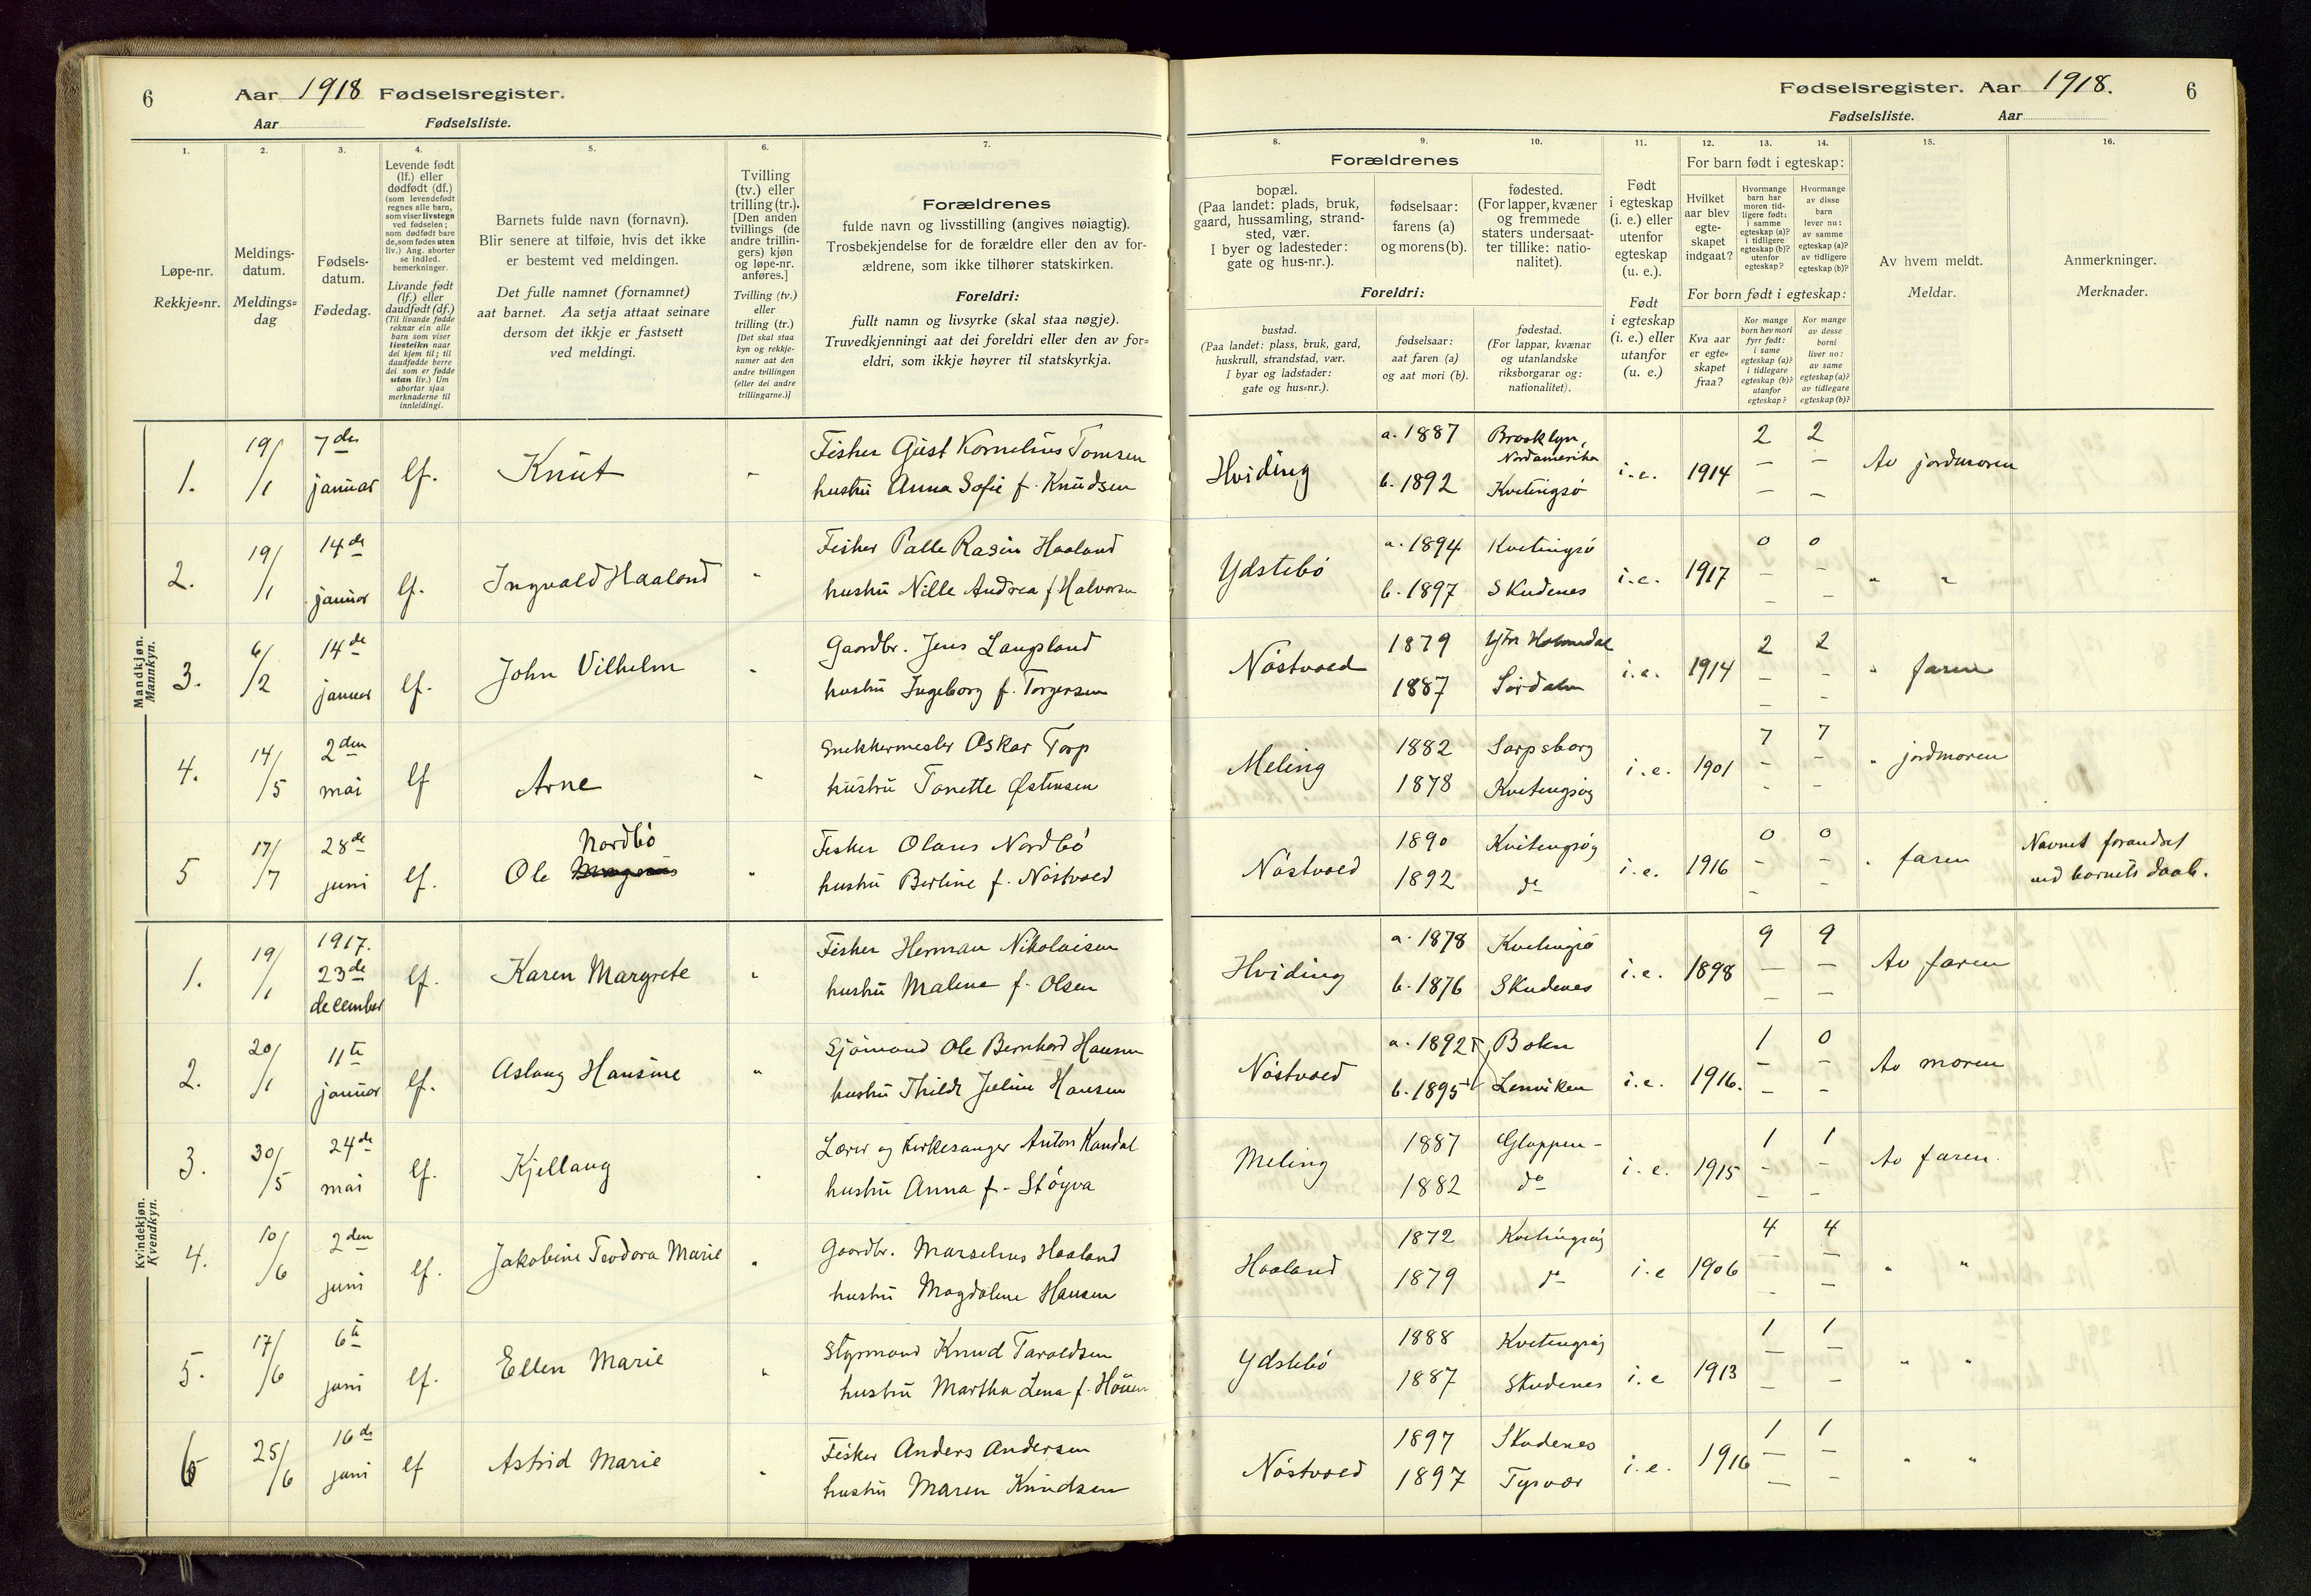 6 Aar 1918 Fødselsregister.
Aar Fødselsliste.
1. 2. 3. 4. 5. 6. 7.
Løpe-nr.
Rekkje=nr.
Meldings-
datum.
Meldings=
dag
Fødsels-
datum.
Fødedag.
Levende født
(lf.) eller
dødfødt (df.)
(som levendefødt
regnes alle barn,
som viser livstegn
ved fødselen;
som dødfødt bare
de, som fødes uten
liv.) Ang. aborter
se indled.
bemerkninger.
Livande født
(lf.) eller
daudfødt (df.)
(Til livande fødde
reknar ein alle
barn som viser
livsteikn naar
dei kjem til; til
daudfødde berre
dei som er fødde
utan liv.) Um
abortar sjaa
merknaderne til
innleidingi.
Barnets fulde navn (fornavn).
Blir senere at tilføie, hvis det ikke
er bestemt ved meldingen.
Det fulle namnet (fornamnet)
aat barnet. Aa setja attaat seinare
dersom det ikkje er fastsett
ved meldingi.
Tvilling
(tv.) eller
trilling (tr.).
[Den anden
tvillings (de
andre trillin-
gers) kjøn
og løpe-nr.
anføres.]
Tvilling (tv.)
eller
trilling (tr.)
[Det skal staa
kyn og rekkje-
numer aat den
andre tvillingen
(eller dei andre
trillingarne.)]
Forældrenes
fulde navn og livsstilling (angives nøiagtig).
Trosbekjendelse for de forældre eller den av for-
ældrene, som ikke tilhører statskirken.
Foreldri:
fullt namn og livsyrke (skal staa nøgje).
Truvedkjenningi aat dei foreldri eller den av for=
eldri, som ikkje høyrer til statskyrkja.
Mandkjøn.
Mannkyn.
1. 19/1 7de januar lf. Knut "
Fisker Gust Kornelius Tomsen
hustru Anna Sofie f. Knudsen
2. 19/1 14de januar lf. Ingvald Haaland "
Fisker Palle Rasin Haaland
hustru Nille Andrea f Halvorsn
3. 6/2 14de januar lf. John Vilhelm "
Gaardbr. Jens Langeland
hustru Ingeborg f. Torgersen
4. 14/5 2den mai lf Arne "
Snekkermester Oskar Torp
hustru Tonette Østensen
5 17/7 28de juni lf. Ole Nordbö "
Fisker Olaus Nordbö
hustru Berline f. Nöstvoed
Kvindekjøn.
Kvendkyn.
1. 19/1 1917. 23de december lf. Karen Margrete "
Fisker Herman Nikolaisen
hustru Malene f. Olsen
2. 20/1 11te januar lf. Aslaug Hansine "
Sjömand Ole Bernhard Hansen
hustru Thilde Juline Hansen
3. 30/5 24de mai lf. Kjellaug "
Lærer og Kirkesanger Anton Kandal
hustru Anna f. Stöyva
4. 10/6 2den juni lf. Jakobine Teodora Marie "
Gaardbr. Marselius Haaland
hustru Magdalene Hansen
5. 17/6 6te juni lf. Ellen Marie "
Styrmand Knud Taraldsen
hustru Martha Lena f. Höien
6 25/6 16de juni lf Astrid Marie "
Fisker Anders Andersen
hustru Maren Knudsen
Fødselsregister. Aar 1918. 6
Fødselsliste. Aar
8. 9. 10. 11. 12. 13. 14. 15. 16.
Forældrenes
bopæl.
(Paa landet: plads, bruk,
gaard, hussamling, strand-
sted, vær.
I byer og ladesteder:
gate og hus-nr.).
fødselsaar:
farens (a)
og morens (b).
fødested.
(For lapper, kvæner
og fremmede
staters undersaat-
ter tillike: natio-
nalitet).
Foreldri:
bustad.
(Paa landet: plass, bruk, gard,
huskrull, strandstad, vær.
I byar og ladstader:
gate og hus=nr.).
fødselsaar:
aat faren (a)
og aat mori (b).
fødestad.
(For lappar, kvænar
og utanlandske
riksborgarar og:
nationalitet).
Født
i egteskap
(i. e.) eller
utenfor
egteskap
(u. e.).
Født
i egteskap
(i. e.) eller
utanfor
(u. e.)
For barn født i egteskap:
Hvilket
aar blev
egte-
skapet
indgaat?
Hvormange
barn har
moren tid-
ligere født:
i samme
egteskap (a)?
i tidligere
egteskap (b)?
utenfor
egteskap?
Hvormange
av disse
barn
lever nu:
av samme
egteskap (a)?
av tidligere
egteskap (b)?
For born født i egteskap:
Kva aar
er egte=
skapet
fraa?
Kor mange
born hev mori
fyrr født:
i same
egteskap (a)?
i tidlegare
egteskap (b)?
utanfor
egteskap?
Kor mange
av desse
borni
liver no:
av same
egteskap (a)?
av tidlegare
egteskap (b)?
Av hvem meldt.
Meldar.
Anmerkninger.
Merknader.
Hviding a. 1887 Brooklyn, Nordamerika i.e. 1914 2 2 Av jordmoren
b. 1892 Kvitingsö
Ydstebö a. 1894 Kvitingsö i.e. 1917 0 0 " "
b. 1897 Skudenes
Nöstvoed 1879 Ytre Holmedal i.e. 1914 2 2 " faren
1887
Meling 1882 Sarpsborg i.e. 1901 7 7 " jordmoren
1878 Kvitingsöy
Nöstvoed 1890 Kvitingsöy i.e. 1916 0 0 " faren Navnet forandret
1892 do ved barnets daab.
Hviding a. 1878 Kvitingsö i.e. 1898 9 9 Av faren
b. 1876 Skudenes
Nöstvoed a. 1892 Bokn i.e. 1916. 1 0 Av moren
b. 1895 Lenviken
Meling 1887 Gloppen - i.e. 1915 1 1 Av faren.
1882 do
Haaland 1872 Kvitingsöy i.e 1906 4 4 " "
1879 do
Ydstebö 1888 Kvitingsöy i.e 1913 1 1 " "
1887 Skudenes
Nöstvoed 1897 Skudenes i.e. 1916 1 1 " "
1897 Tysvær